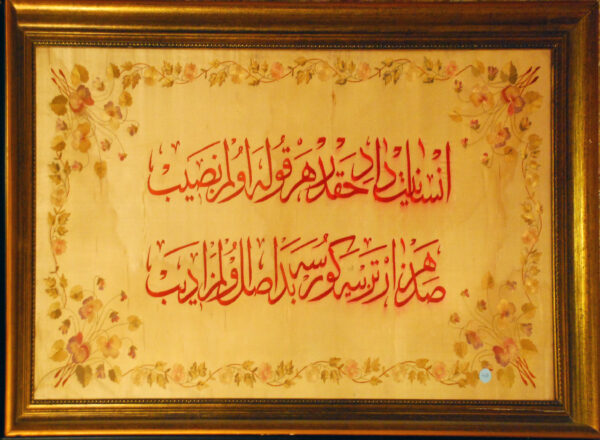 انسانیت داد حقدر هر قوله اولمز نصیب
صد هزار تربیه کورسه بد اصل اولمز ادیب